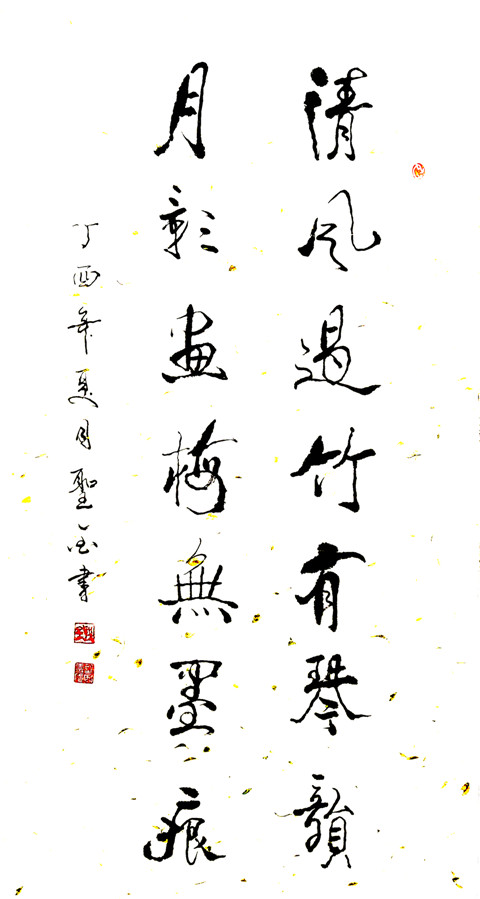 清風過竹有琴韻
月影畫梅無墨痕
丁酉年夏月聖金書